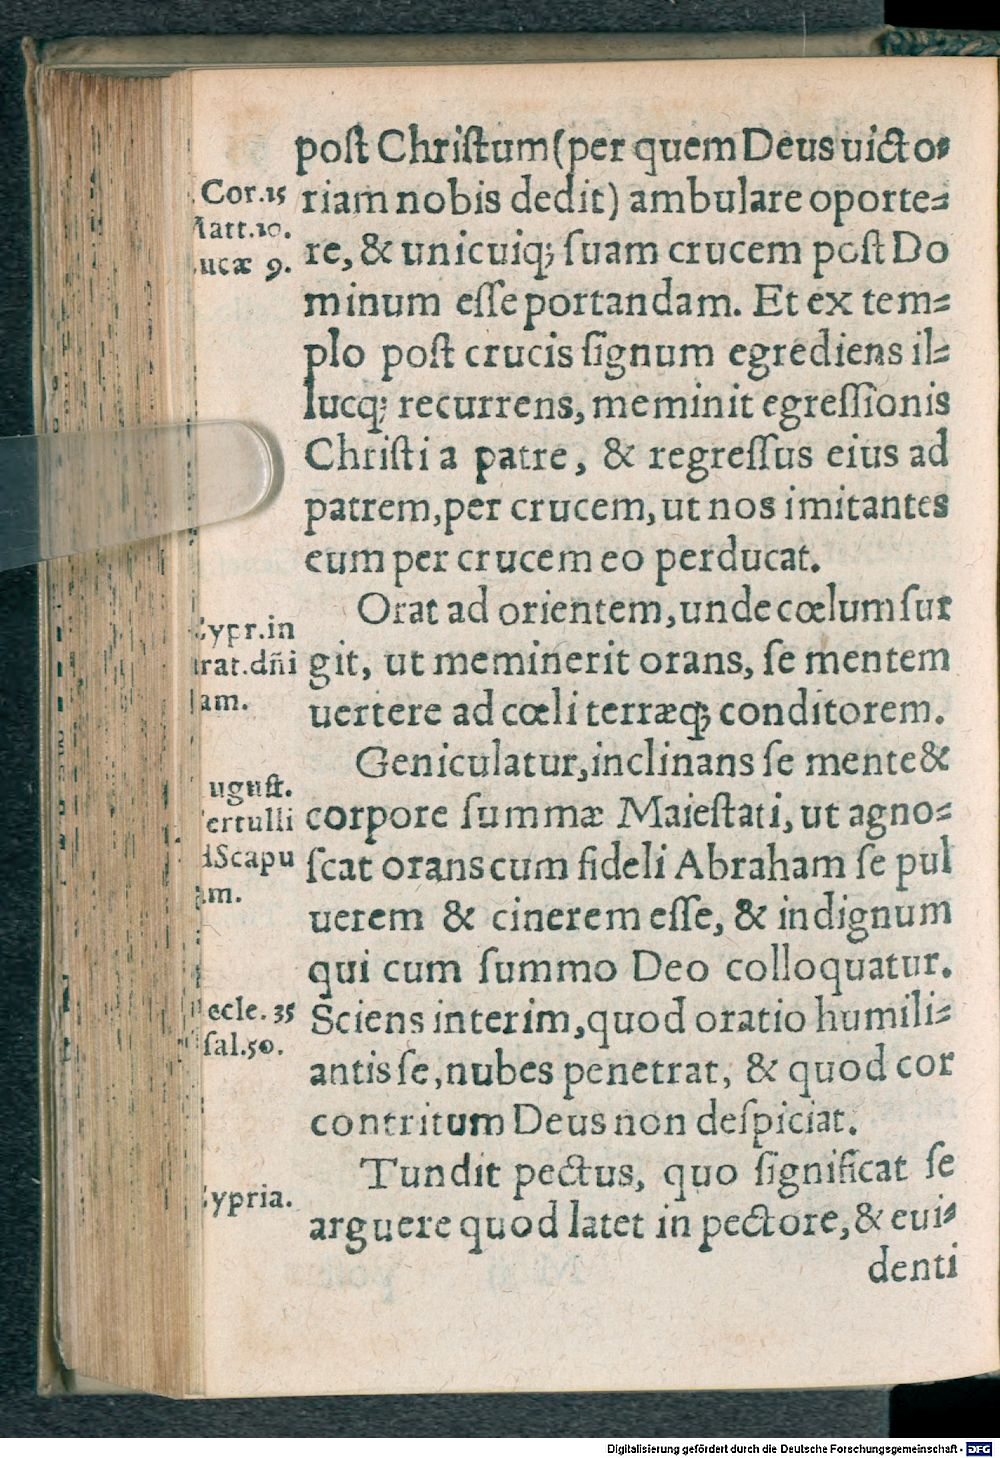 post Christum (per quem Deus uicto⸗
riam nobis dedit) ambulare oporte⸗
re, & unicuiq; suam crucem post Do
minum esse portandam. Et ex tem⸗
plo post crucis signum egrediens il⸗
lucq; recurrens, meminit egressionis
Christi a patre, & regressus eius ad
patrem, per crucem, ut nos imitantes
eum per crucem eo perducat.
Orat ad orientem, unde cœlum sur
git, ut meminerit orans, se mentem
uertere ad cœli terræq; conditorem.
Geniculatur, inclinans se mente &
corpore summæ Maiestati, ut agno⸗
scat orans cum fideli Abraham se pul
uerem & cinerem esse, & indignum
qui cum summo Deo colloquatur.
Sciens interim, quod oratio humili⸗
antis se, nubes penetrat, & quod cor
contritum Deus non despiciat.
Tundit pectus, quo significat se
arguere quod latet in pectore, & eui⸗
denti
Cor.15
att.10.
ucæ 9.
ypr.in
rat.dñi
am.
ugust.
ertulli
dScapu
am.
ecle. 35
sal.50.
ypria.
Digitalisierung gefördert durch die Deutsche Forschungsgemeinschaft - DFG